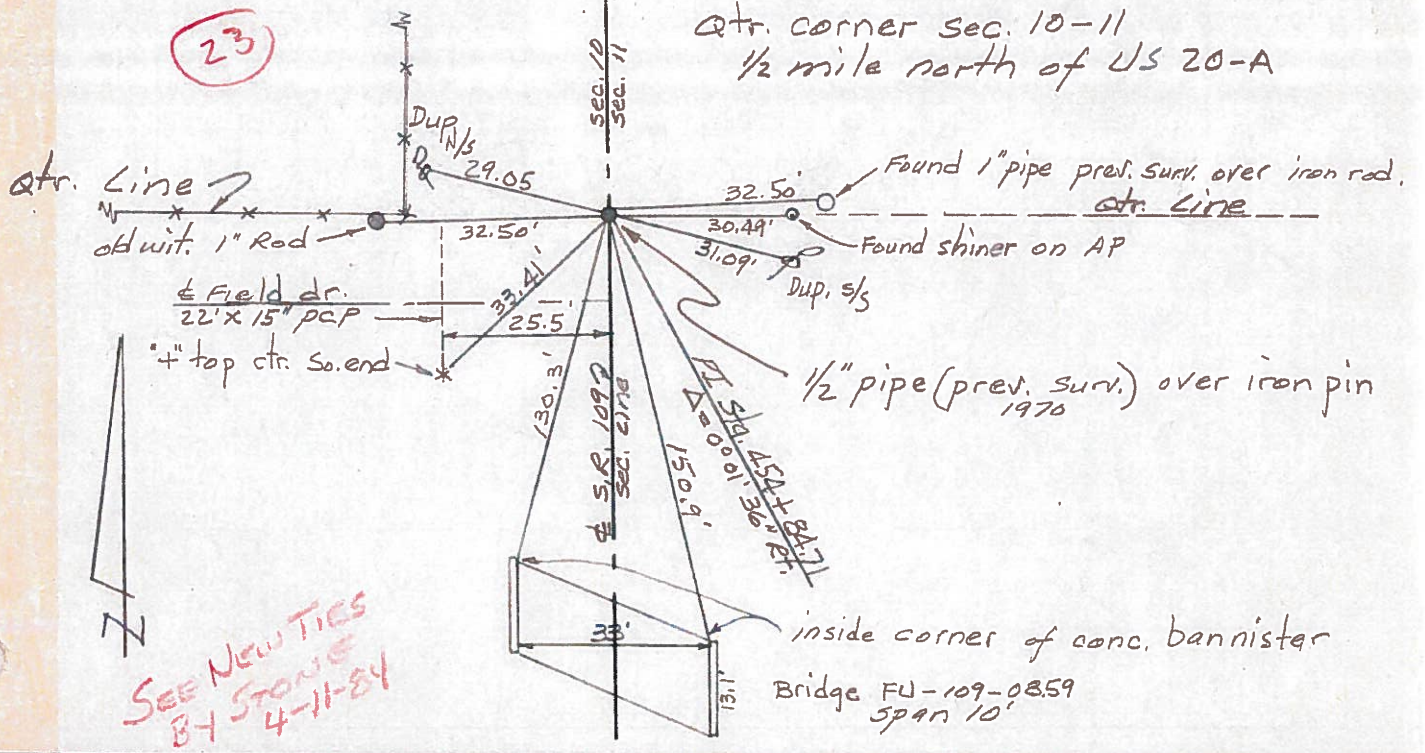 23
Qtr. corner sec. 10-11
1/2 mile north of US 20-A
sec. 10
sec. 11
Dup, N/S
29.05
Qtr. Line
old wit. 1" Rod
32.50'
32.50'
Found 1" pipe prev. surv. over iron rod.
Qtr. Line
30.49'
Found shiner on AP
31.09'
Dup, S/S
33.41'
℄ Field dr.
22' x 15" PCP
25.5'
"+" top ctr. So. end
1/2" pipe (prev. surv.) over iron pin
1970
130.3'
℄ S.R. 109
sec. line
150.9'
PI Sta. 454+84.71
Δ=0°01'36" Rt.
N
33'
inside corner of conc. bannister
13.1'
Bridge FU-109-0859
Span 10'
SEE NEW TIES
BY STONE
4-11-84